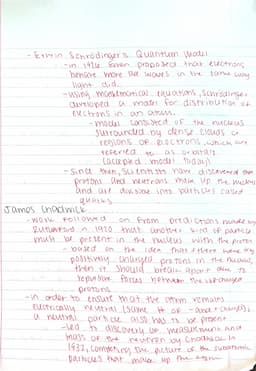 - Erwin Schrödinger's Quantum Model
- in 1926 Erwin proposed that electrons
behave more like waves in the same way
light did.
- using mathematical equations, Schrödinger
developed a model for distribution of
electrons in an atom.
- model consisted of the nucleus
surrounded by dense clouds or
regions of electrons, which are
referred to as orbitals
(accepted model today)
- Since then, scientists have discovered that
protons and neutrons make up the nucleus
and are divisible into particles called
quarks
James Chadwick
- work followed on from predictions made by
Rutherford in 1920 that another kind of particle
must be present in the nucleus with the proton
- based on the idea that if there were only
positively charged protons in the nucleus,
then it should break apart due to
repulsive forces between the
protons
- in order to ensure that the atom remains
electrically neutral (same # of - and + charges),
a neutral particle also has to be present
- led to discovery of measurement and
mass of the neutron by Chadwick in
1932, completing the picture of the subatomic
particles that make up the atom